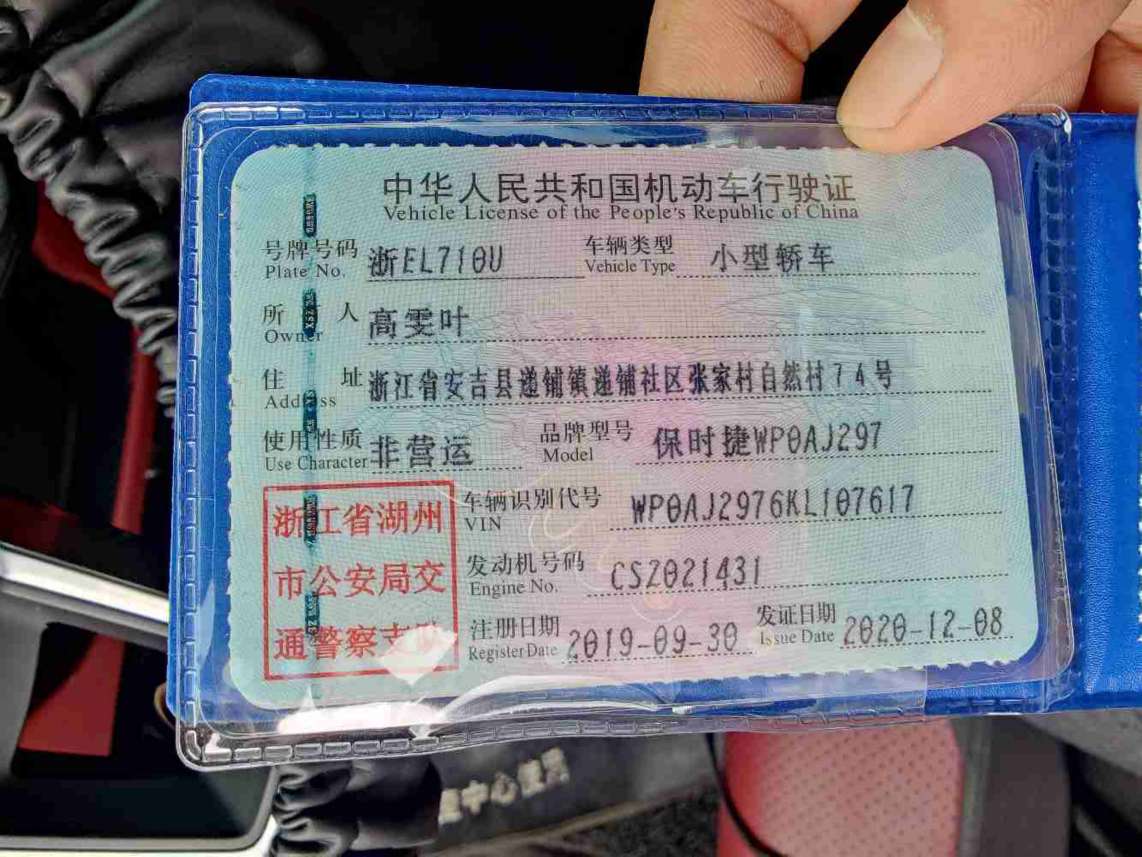 中华人民共和国机动车行驶证
Vehicle License of the People's Republic of China
号牌号码 浙EL710U 车辆类型 小型轿车
Plate No. Vehicle Type
所 人 高雯叶
Owner
住 址 浙江省安吉县递铺镇递铺社区张家村自然村74号
Address
使用性质 非营运 品牌型号 保时捷WP0AJ297
Use Character Model
浙江省湖州
市公安局交
通警察支队
车辆识别代号 WP0AJ2976KL107617
VIN
发动机号码 CSZ021431
Engine No.
注册日期 2019-09-30 发证日期 2020-12-08
Register Date Issue Date
中心使用